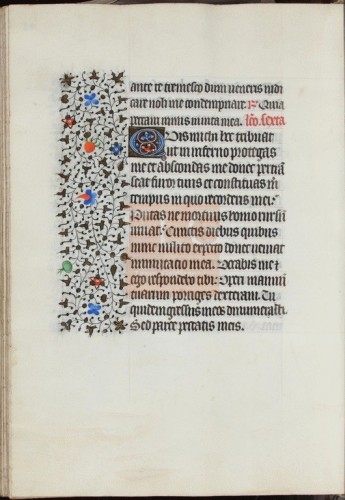 ante te tremesco dum veneris iudi
care noli me condempnare. Quia
peccavi nimis in vita mea. Lc̄o. sexta
Quis michi hec tribuat
ut in inferno protegas
me et abscondas me donec pertrā
seat furor tuus et constituas m̄
tempus in quo recorderis mei.
Putas ne mortuus homo rursū
vivat. Cunctis diebus quibus
nunc milito expecto donec veniat
inmutacio mea. Vocabis me et
ego respondebo tibi. Operi manuū
tuarum porriges dexteram. Tu
quidem gressus meos dinumerasti.
Sed parce peccatis meis.